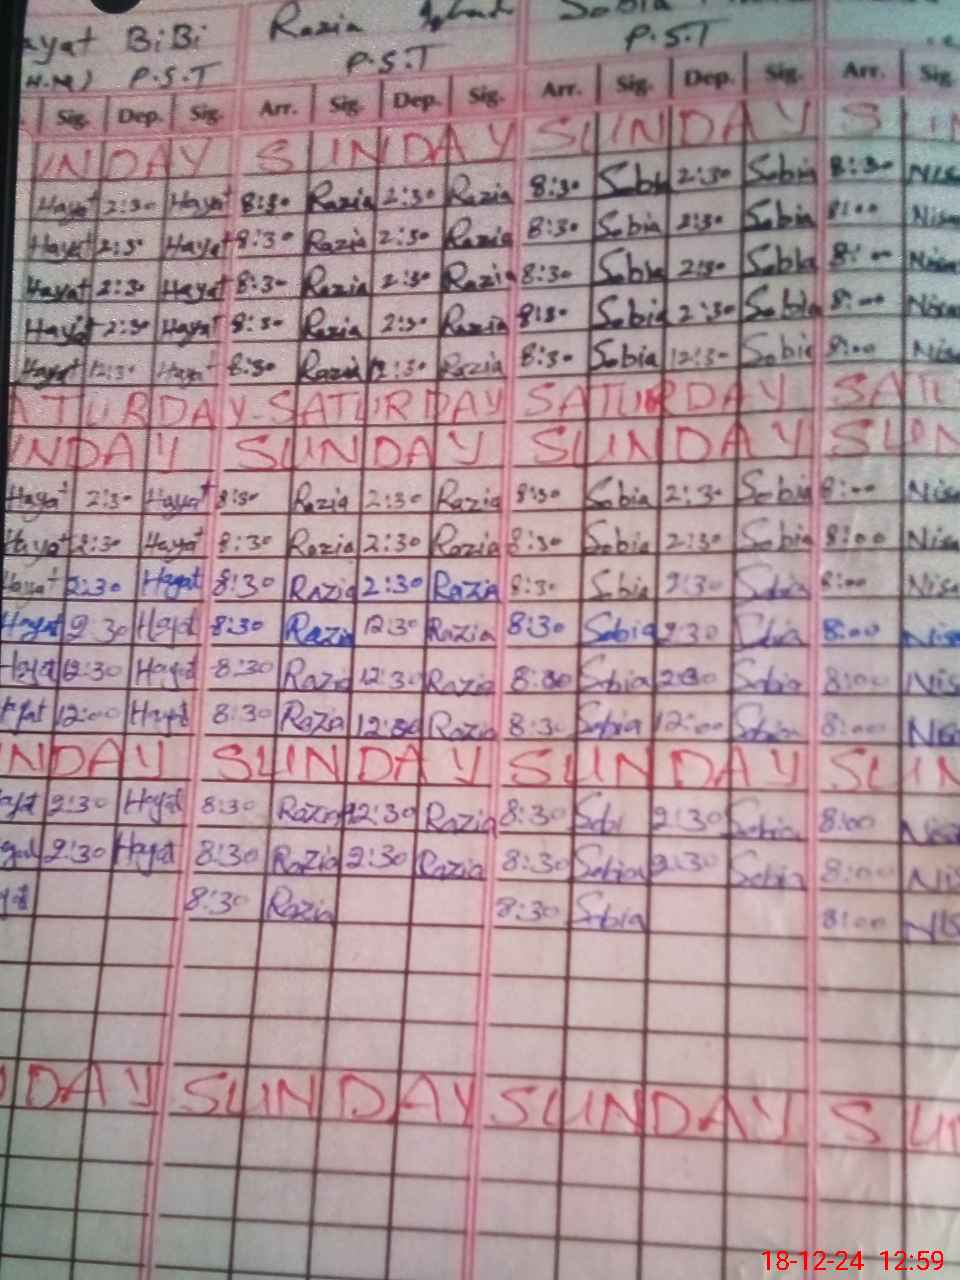 ayat BiBi Razia Sobia
P.S.T P.S.T P.S.T
Sig. Dep. Sig. Arr. Sig. Dep. Sig. Arr. Sig. Dep. Sig. Arr. Sig.
UNDAY SUNDAY SUNDAY SUN
Hayat 2:30 Hayat 8:30 Razia 2:30 Razia 8:30 Sobi 2:30 Sobia 8:30 Nis
Hayat 2:30 Hayat 8:30 Razia 2:30 Razia 8:30 Sobia 2:30 Sobia 8:00 Nisa
Hayat 2:30 Hayat 8:30 Razia 2:30 Razia 8:30 Sobia 2:30 Sobia 8:00 Nisa
Hayat 2:30 Hayat 8:30 Razia 2:30 Razia 8:30 Sobia 2:30 Sobia 8:00 Nisa
Hayat 12:30 Hayat 8:30 Razia 12:30 Razia 8:30 Sobia 12:30 Sobia 8:00 Nis
ATURDAY SATURDAY SATURDAY SATU
UNDAY SUNDAY SUNDAY SUN
Hayat 2:30 Hayat 8:30 Razia 2:30 Razia 8:30 Sobia 2:30 Sobia 8:00 Nisa
Hayat 2:30 Hayat 8:30 Razia 2:30 Razia 8:30 Sobia 2:30 Sobia 8:00 Nisa
Hayat 2:30 Hayat 8:30 Razia 2:30 Razia 8:30 Sobia 2:30 Sobia 8:00 Nisa
Hayat 2:30 Hayat 8:30 Razia 12:30 Razia 8:30 Sobia 2:30 Sobia 8:00 Nisa
Hayat 12:30 Hayat 8:30 Razia 12:30 Razia 8:30 Sobia 2:30 Sobia 8:00 Nis
ayat 12:00 Hayat 8:30 Razia Razia 8:30 Sobia 12:00 Sobia 8:00 Nisa
NDAY SUNDAY SUNDAY SUN
ayat 2:30 Hayat 8:30 Razia 2:30 Razia 8:30 Sobi 2:30 Sobia 8:00 Nisa
yat 2:30 Hayat 8:30 Razia 2:30 Razia 8:30 Sobia 2:30 Sobia 8:00 Nis
yat 8:30 Razia 8:30 Sobia 8:00 NIS
DAY SUNDAY SUNDAY SUN
18-12-24 12:59